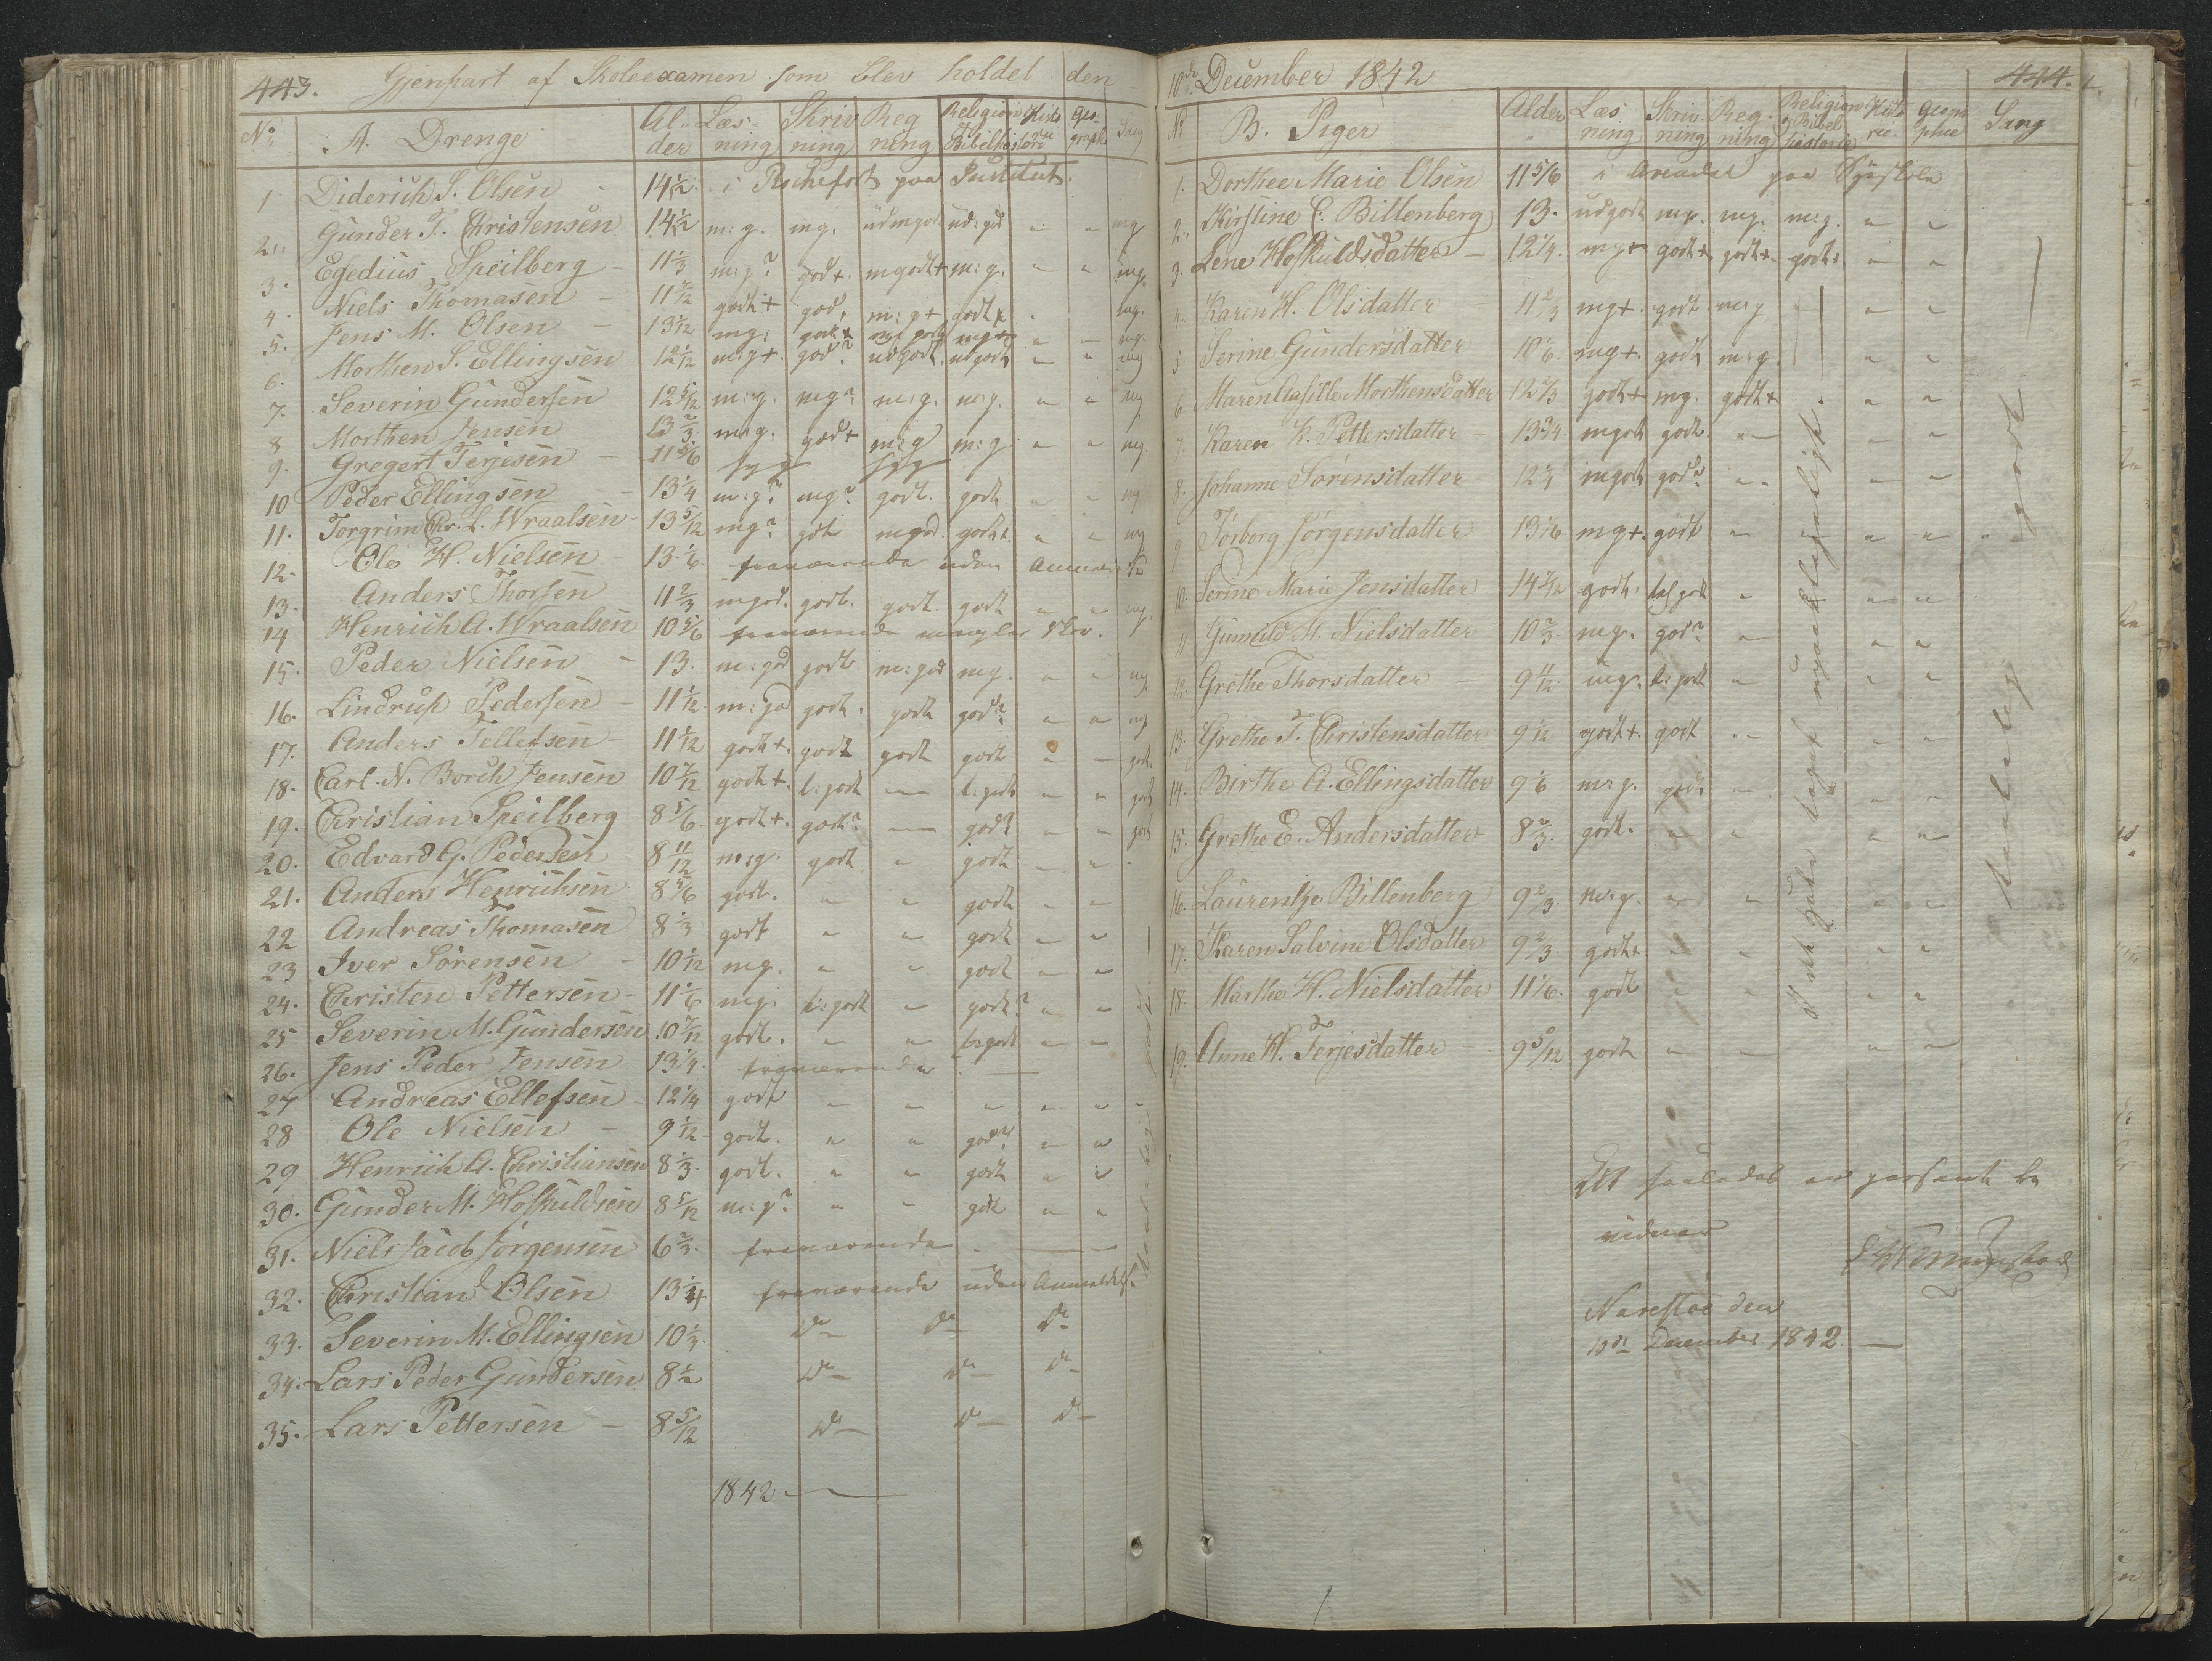 443. Gjenpart af Skoleexamen som blev holdet den
No A. Drenge Alder Læsning Skrivning Regning Religion Bibelhistorie Historie Geographi Sang
1 Diderich S. Olsen 14 1/2 i Rochefort paa Institut.
2 Gunder T. Christensen 14 1/2 m:g. mg. udmgodt ud:gd " " mg
3. Egedius Speilberg - 11 1/3 m:g? godt+. mgodt+ m:g. " " mg.
4. Niels Thomasen - 11 7/12 godt+ god, m:g+ godt+ " mg.
5. Jens M. Olsen - 13 1/12 mg: godt+ mg+ " - mg.
6. Morthen S. Ellingsen 12 1/12 m:g+. god? udgodt. udgodt - " mg
7. Severin Gundersen 12 5/12 m:g. mg? m:g. m:g. " " mg
8 Morthen Jensen 13 2/3. m:g. god+ m:g m:g. " " mg.
9. Gregert Terjesen - 11 5/6 syg syg
10 Peder Ellingsen - 13 1/4 m:g? mg? godt. godt " - mg
11. Torgrim Chr. L. Wraalsen - 13 5/12 mg? gdt mgod. godt+. " " mg
12. Ole H. Nielsen 13 1/6. fraværende uden
13. Anders Thorsen 11 2/3 mgod. godt. godt. godt " " mg.
14 Henrich A. Wraalsen 10 5/6 fraværende mangler Skoe.
15. Peder Nielsen - 13. m:god godt m:god mg. " " mg.
16. Lindrup Pedersen - 11 1/12 m:god godt. godt god? " " mg
17. Anders Tellefsen - 11 1/12 godt+. godt godt godt " - godt.
18. Carl N. Borch Jensen 10 7/12 godt+. t:godt - t:godt " " godt
19. Christian Speilberg 8 5/6. godt+. godt? - godt - - godt
20. Edvard G. Pedersen 8 11/12 m:g. godt " godt - " .
21. Anders Henrichsen 8 5/6 godt. " " godt - -
22 Andreas Thomasen 8 1/3 godt " " godt - "
23 Iver Sörensen - 10 1/12 mg. " " godt - "
24. Christen Pettersen - 11 1/6 mg. t:godt " godt? " "
25 Severin M. Gundersen 10 7/12 godt. " " t:godt - -
26. Jens Peder Jensen 13 1/4. fraværende -
27 Andreas Ellefsen - 12 1/4 godt " " " " " "
28 Ole Nielsen - 9 1/12 - godt. " " god? " "
29 Henrich A. Christiansen 8 1/3. godt. " " godt " "
30. Gunder M. Hofkuldsen 8 5/12 m:g? " " gdt " "
31. Niels Jacob Jörgensen 6 2/3. fraværende -
32. Christian Olsen 13 1/4 fraværende uden Anmeldelse.
33. Severin M. Ellingsen 10 1/3. Do - Do - Do -
34. Lars Peder Gundersen 8 1/2 Do - Do - Do -
35. Lars Pettersen - 8 5/12 Do - Do - Do -
1842 -
10de December 1842 444.
No B. Piger Alder Læsning Skrivning Regning Religion og Bibelhistorie Historie Geographie Sang
1. Dorthee Marie Olsen 11 5/6 i Arendal paa Syeskole
2. Kirstine C. Billenberg 13. udgodt mg. mg. m:g. " "
3. Lene Hofkuldsdatter - 12 1/4. mg+ godt+. godt+. godt+. " "
4. Karen H. Olsdatter 11 2/3 mg+. godt. m:g " "
5 Serine Gundersdatter 10 1/6. mg+. godt m:g. " "
6. Maren Morthensdatter 12 1/3 godt+ mg. godt+ " "
7. Karen K. Pettersdatter - 13 3/4 mgodt godt. " - " "
8. Johanne Sörensdatter 12 1/4 mgodt god? " " " "
9 Torborg Jörgensdatter 13 1/6 mg+. godt " " "
10. Serine Marie Jensdatter 14 7/12 godt. t:godt " " "
11. Gunnild M. Nielsdatter 10 2/3. mg. god? " " "
12. Grethe Thorsdatter - 9 11/12. mg. t:godt " " "
13. Grethe T. Christensdatter 9 1/12 godt+. godt " " "
14. Birthe A. Ellingsdatter 9 1/6 m:g. godt " " "
15. Grethe E. Andersdatter 8 2/3. godt. " " " "
16. Laurentze Billenberg 9 2/3. m:g. " " " "
17. Karen Salvine Olsdatter 9 2/3. godt+ " " " "
18. Marthe H. Nielsdatter 11 1/6. godt " " "
19. Anne H. Terjesdatter - 9 5/12 godt " " " "
taalelig godt
At saaledes er passeret
vidner
Narestöe den
10de December 1842. -